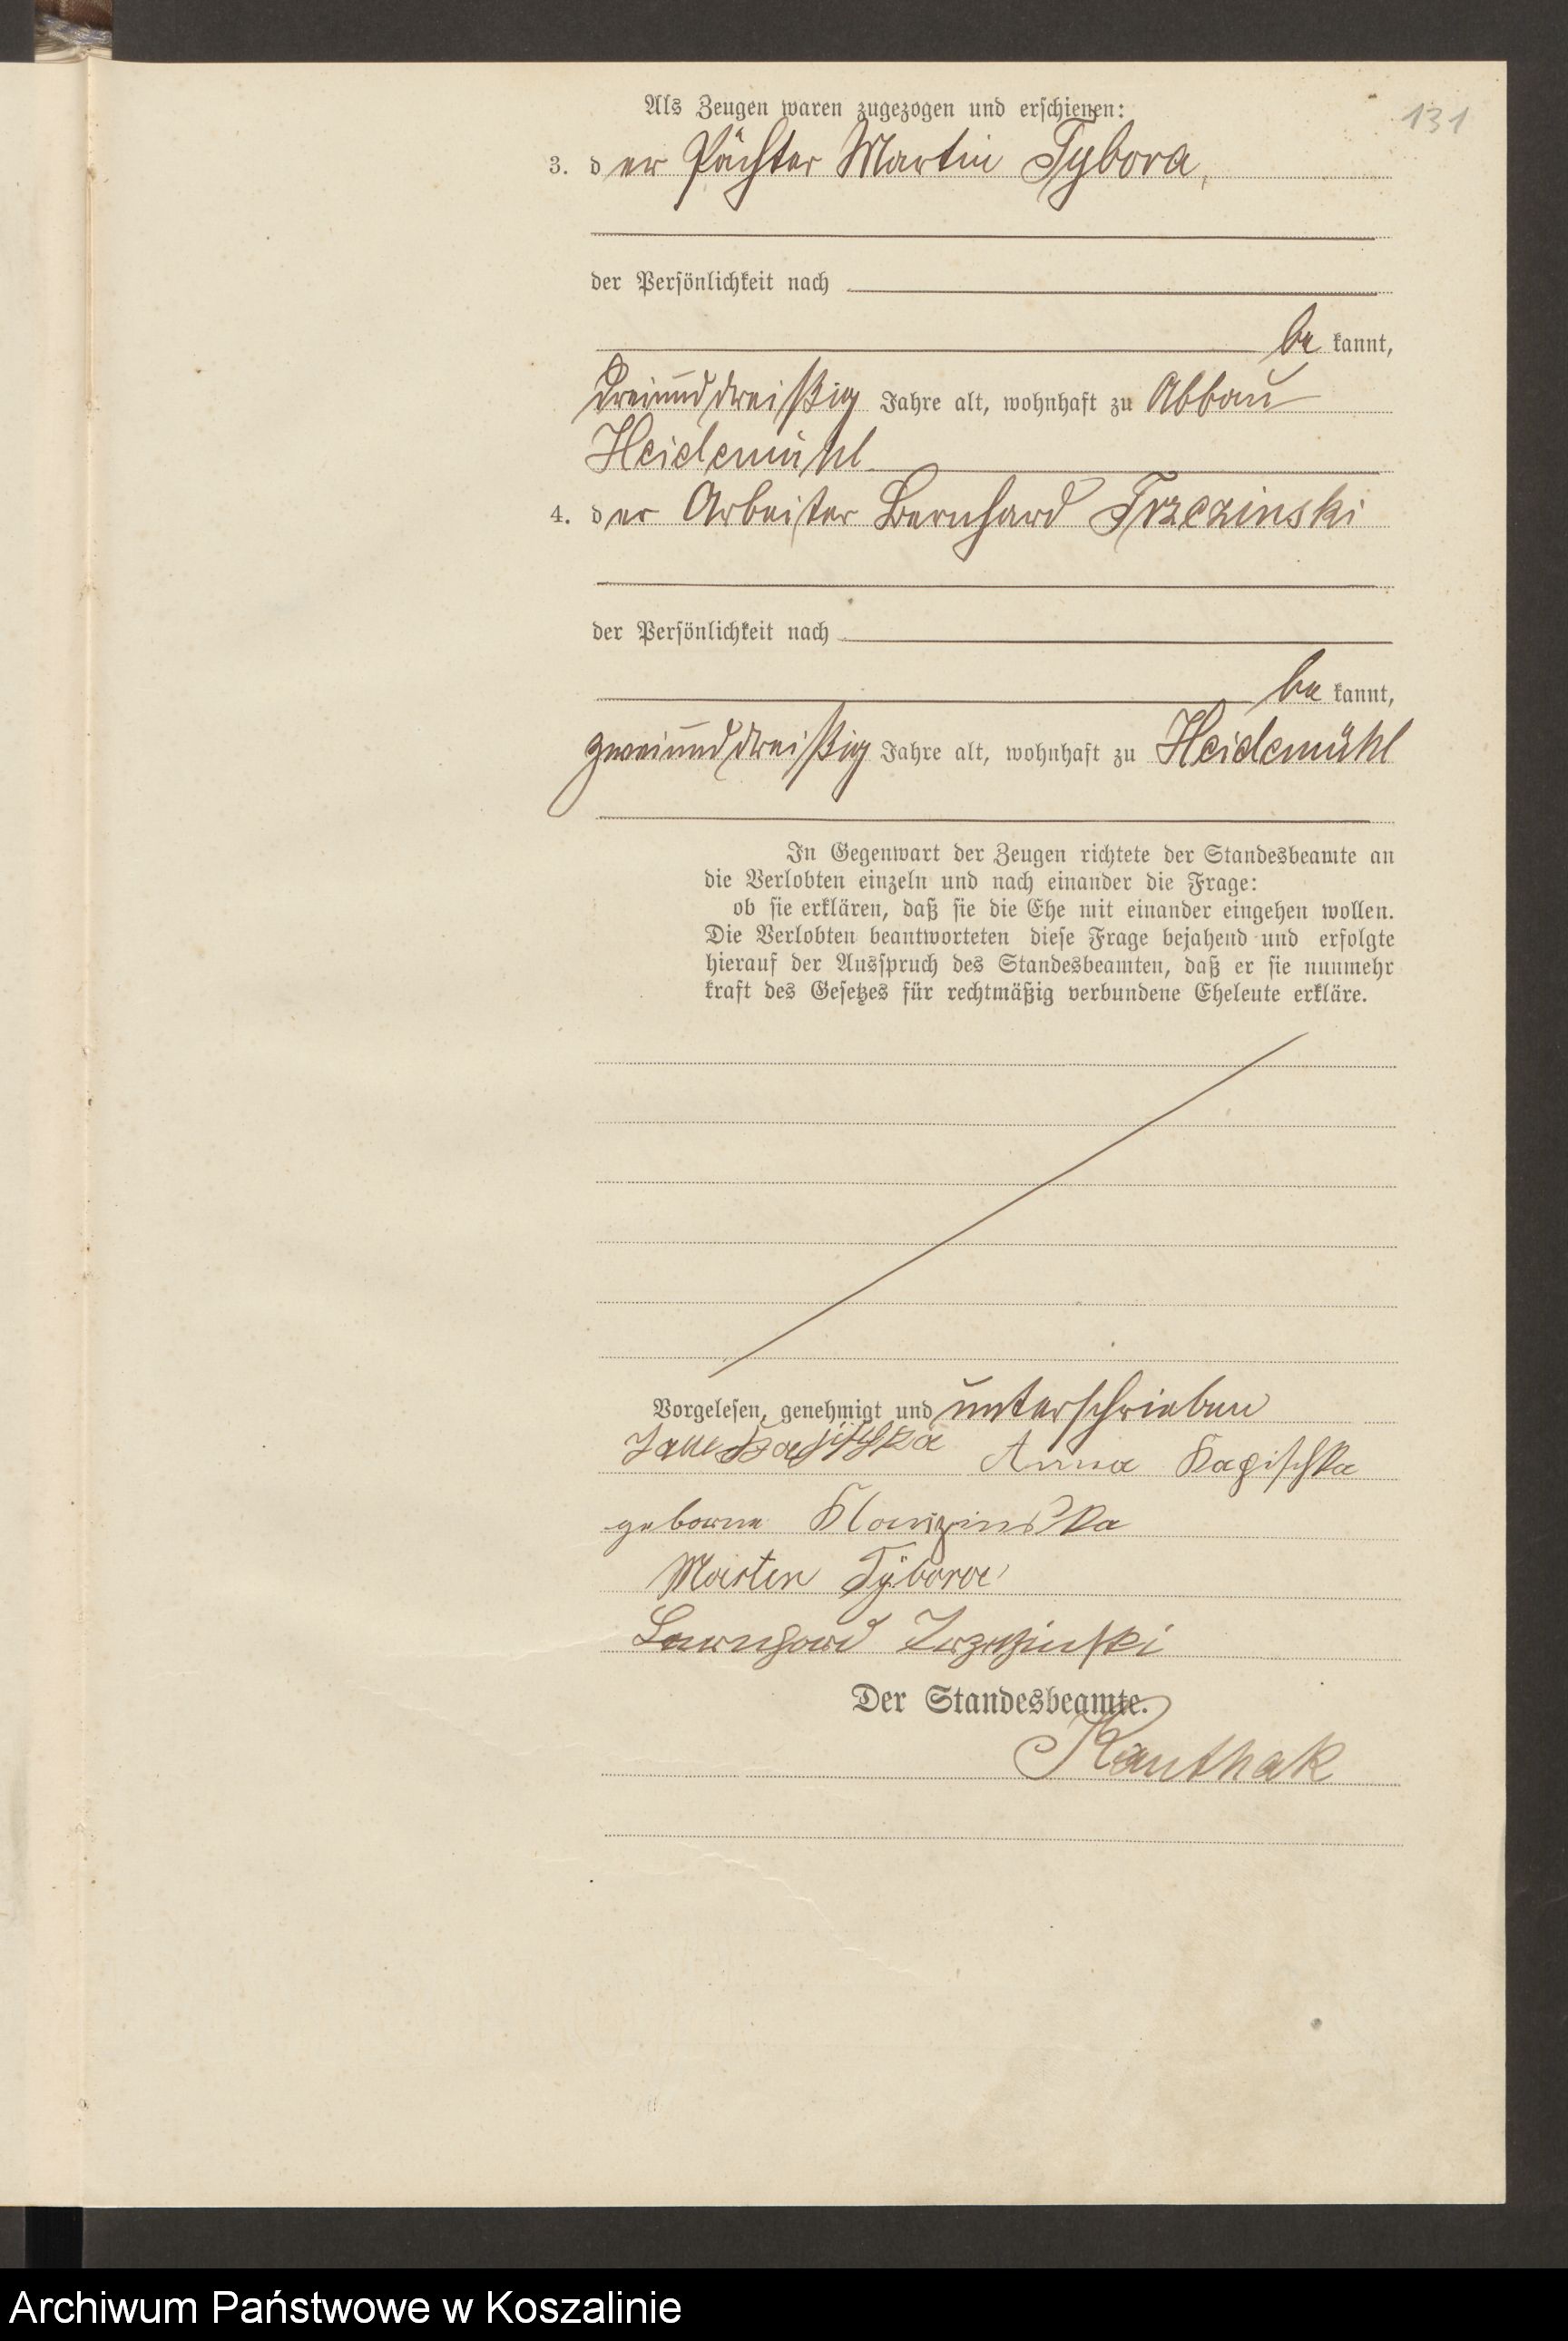 131
Als Zeugen waren zugezogen und erschienen:
3. der Pächter Martin Tybora,
der Persönlichkeit nach
be kannt,
dreiunddreißig Jahre alt, wohnhaft zu Abbau
Heidemühl
4. der Arbeiter Bernhard Trzezinski
der Persönlichkeit nach
be kannt,
zweiunddreißig Jahre alt, wohnhaft zu Heidemühl
In Gegenwart der Zeugen richtete der Standesbeamte an
die Verlobten einzeln und nach einander die Frage:
ob sie erklären, daß sie die Ehe mit einander eingehen wollen.
Die Verlobten beantworteten diese Frage bejahend und erfolgte
hierauf der Ausspruch des Standesbeamten, daß er sie nunmehr
kraft des Gesetzes für rechtmäßig verbundene Eheleute erkläre.
Vorgelesen, genehmigt und unterschrieben
Anna Kagischka
geborne
Martin Tybora
Bernhard
Der Standesbeamte.
Kauthak
Archiwum Państwowe w Koszalinie